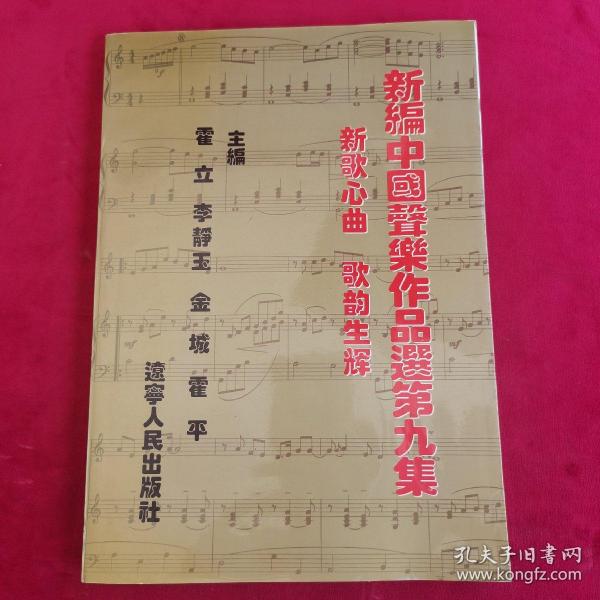 新編中國聲樂作品選第九集
新歌心曲 歌韵生辉
主編
霍立 李靜玉 金城 霍平
遼寧人民出版社
孔夫子旧书网
www.kongfz.com